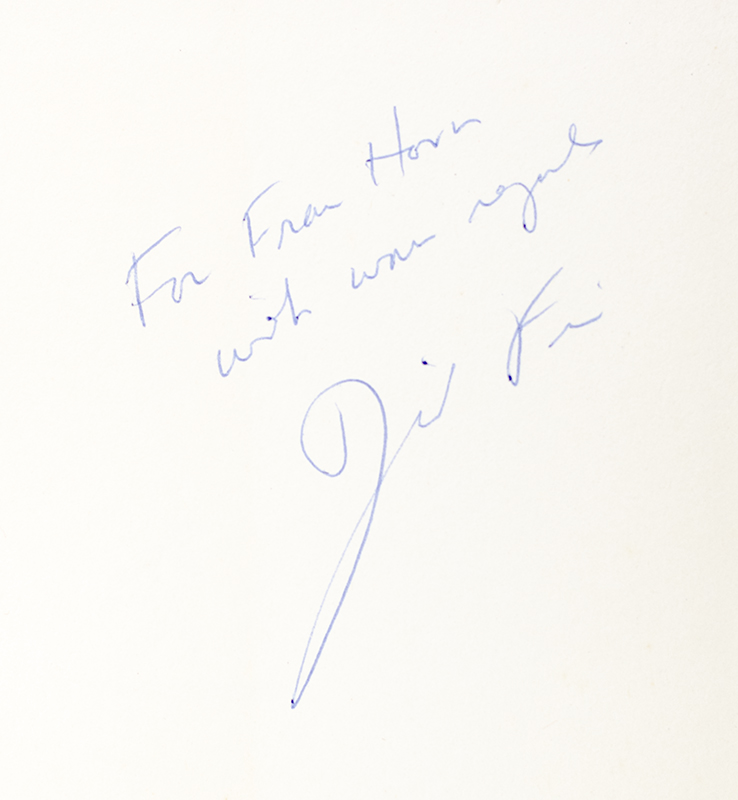 For Fran Horn
with warm regards